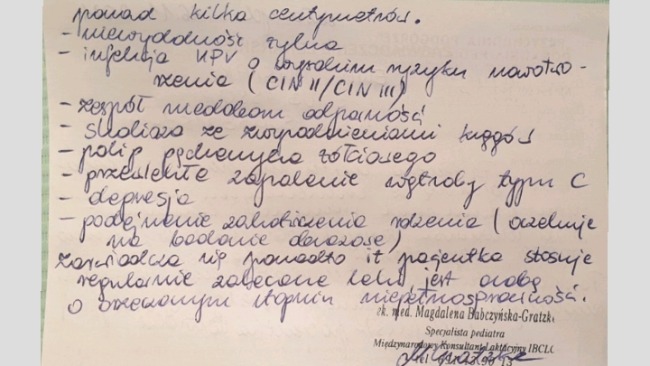 ponad kilka centymetrów.
- niewydolność żylna
- infekcja HPV o wysokim ryzyku nowotwo-
rzenia (CIN II/CIN III)
- zespół niedoborn odporność
- skolioza ze zwyrodnieniami kręgów
- polip pęcherzyka żółciowego
- przewlekłe zapalenie wątroby typu C
- depresja
- podejrzenie zakażenia rdzenia (oczekuje
na badanie obrazowe)
Zaświadcza się ponadto iż pacjentka stosuje
regularnie zalecane leki, jest osobą
o orzeczonym stopniu niepełnosprawność.
ek. med. Magdalena Babczyńska-Gratzk
Specjalista pediatra
Międzynarodowy Konsultant Laktacyjny IBCLC